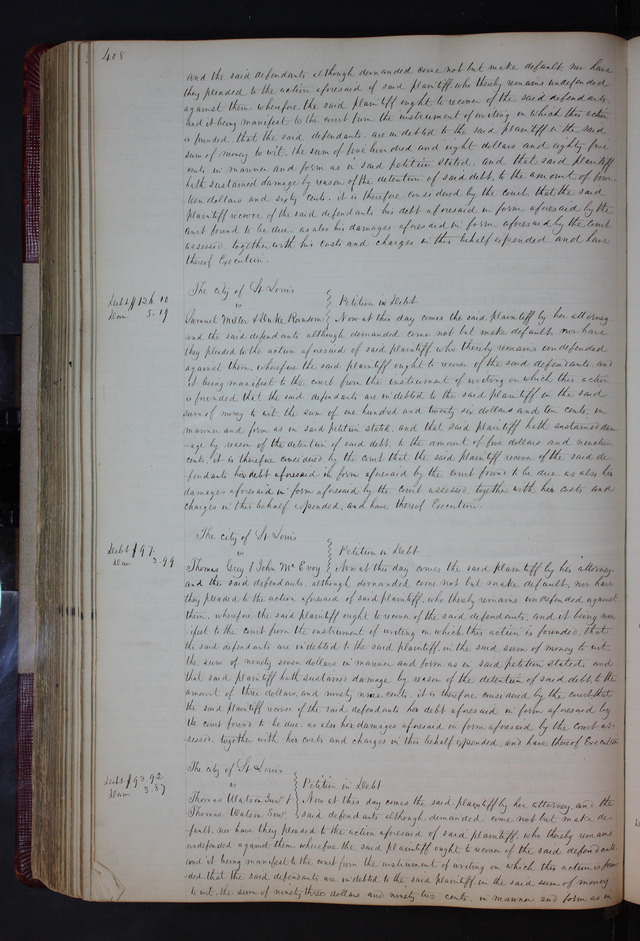 408
and the said defendants although demanded come not but make default nor have
they pleaded to the action aforesaid of said plaintiff, who thereby remains undefended
against them wherefore the said plaintiff ought to recover of the said defendants.
And it being manifest to the court from the instrument of writing on which this action
is founded, that the said defendants are indebted to the said plaintiff in the said
sum of money to wit, the sum of five hundred and eight dollars and eighty five
cents, in manner and form as in said petition stated, and that said plaintiff
hath sustained damage by reason of the detention of said debt, to the amount of four
teen dollars and sixty cents. it is therefore considered by the court that the said
plaintiff recover of the said defendants his debt aforesaid in form aforesaid by the
court found to be due, as also his damages aforesaid in form aforesaid by the court
assessed, together with his costs and charges in this behalf expended and have
thereof Execution.
The city of St Louis
Debt $126.10
vs
Petition in Debt
Dam 5.19
Samuel Miller & Duke Ransom
Now at this day comes the said plaintiff by her attorney
and the said defendants although demanded come not but make default, nor have
they pleaded to the action aforesaid of said plaintiff who thereby remains undefended
against them, wherefore the said plaintiff ought to recover of the said defendants, and
it being manifest to the court from the instrument of writing on which this action
is founded that the said defendants are indebted to the said plaintiff in the said
sum of money to wit the sum of one hundred and twenty six dollars and ten cents, in
manner and form as in said petition stated, and that said plaintiff hath sustained dam
-age by reason of the detention of said debt, to the amount of five dollars and nineteen
cents, it is therefore considered by the court that the said plaintiff recover of the said de-
fendants her debt aforesaid in form aforesaid by the court found to be due as also her
damages aforesaid in form aforesaid by the court assessed, together with her costs and
charges in this behalf expended, and have thereof Execution.
The city of St Louis
Debt $97.
vs
Petition in Debt
Dam 3.99
Thomas Grey & John McEvoy
Now at this day comes the said plaintiff by her attorney
and the said defendants, although demanded come not but make default, nor have
they pleaded to the action aforesaid of said plaintiff, who thereby remains undefended against
them, wherefore the said plaintiff ought to recover of the said defendants, and it being man
ifest to the court from the instrument of writing on which this action is founded, that
the said defendants are indebted to the said plaintiff in the said sum of money to wit
the sum of ninety seven dollars in manner and form as in said petition stated, and
that said plaintiff hath sustained damage by reason of the detention of said debt, to the
amount of three dollars and ninety nine cents, it is therefore considered by the court that
the said plaintiff recover of the said defendants her debt aforesaid in form aforesaid by
the court found to be due, as also her damages aforesaid in form aforesaid by the court as-
sessed, together with her costs and charges in this behalf expended, and have thereof Execution
The city of St Louis
Debt $93.92
vs
Petition in Debt
Dam 3.87
Thomas Watson Junr &
Now at this day comes the said plaintiff by her attorney, and the
Thomas Watson Senr
said defendants although demanded come not but make de-
fault, nor have they pleaded to the action aforesaid of said plaintiff, who thereby remains
undefended against them wherefore the said plaintiff ought to recover of the said defendants
and it being manifest to the court from the instrument of writing on which this action is foun
ded, that the said defendants are indebted to the said plaintiff in the said sum of money
to wit, the sum of ninety three dollars and ninety two cents, in manner and form as in